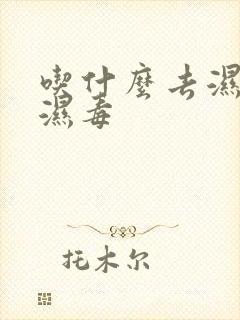 喫什麼去濕
濕毒
托木尔